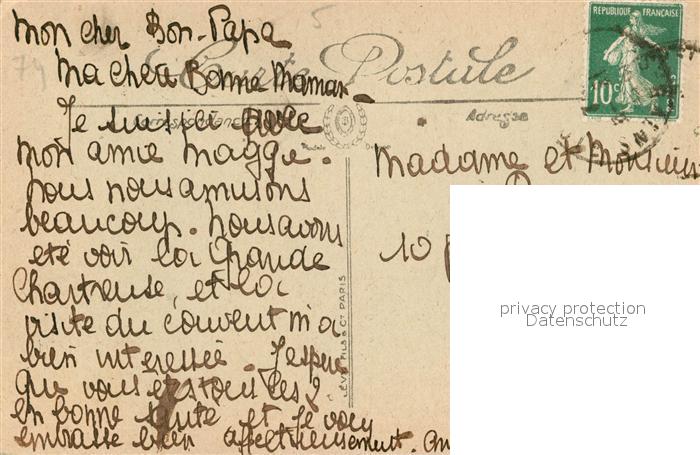 Mon cher Bon-Papa
Ma chère Bonne Maman
Carte Postale
Je suis ici avec
Correspondance
Adresse
mon amie Maggie.
nous nous amusons
beaucoup. nous avons
été voir la Grande
Chartreuse, et la
visite du couvent m'a
bien interessée. J'espère
que vous êtes tous les 2
en bonne santé et je vous
embrasse bien affectueusement.
Madame et Monsieur
10
LÉVY FILS & Cie PARIS
RÉPUBLIQUE FRANÇAISE
10c
privacy protection
Datenschutz